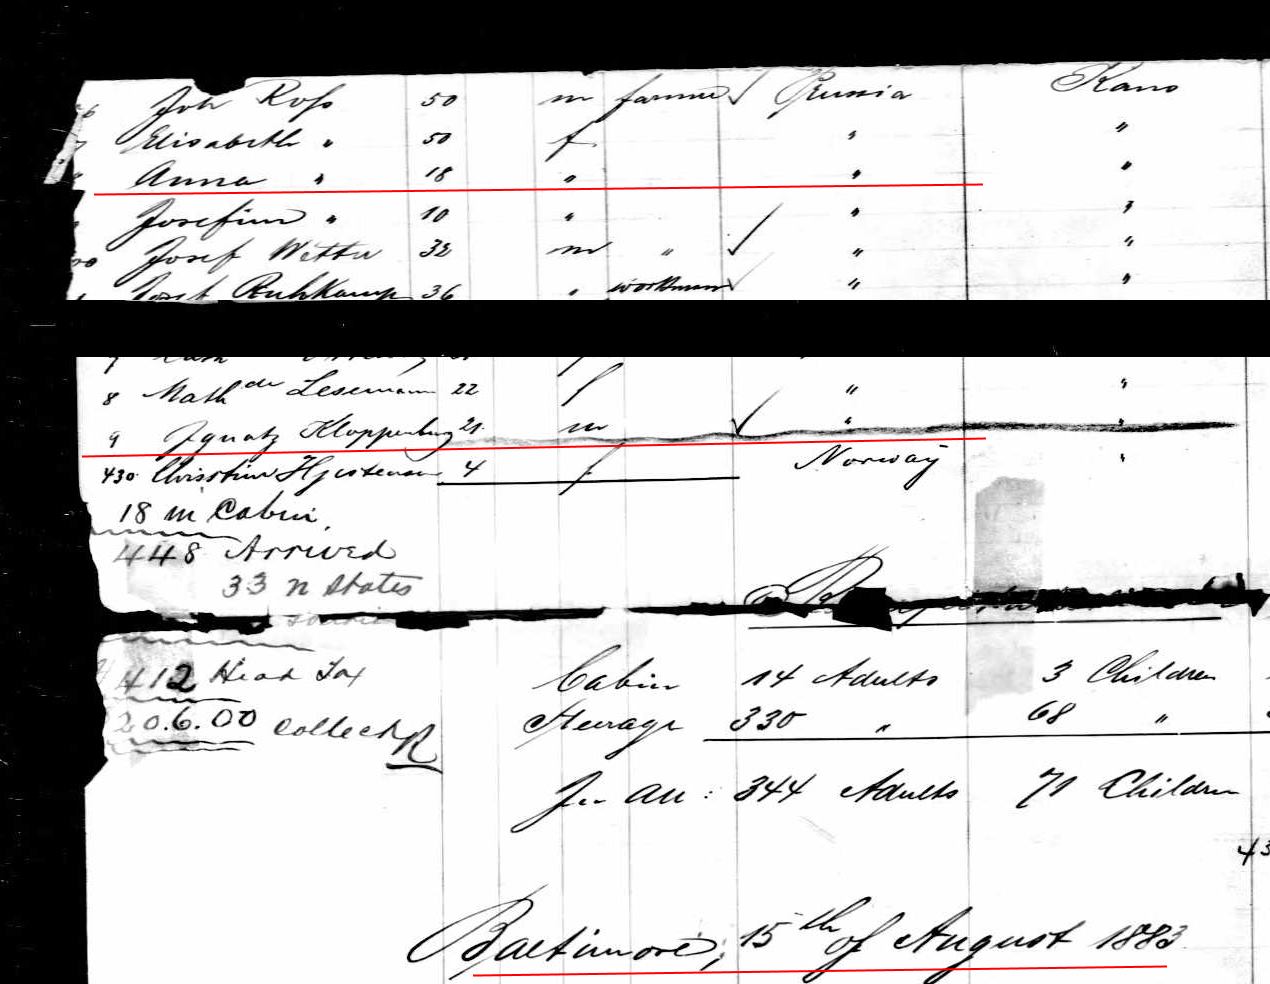 6 Joh Ross 50 m farmer Prussia Kans
7 Elisabeth " 50 f " "
" Anna " 18 " " "
" Josefine " 10 " " "
00 Josef Wetter 32 m " " "
Josef Ruhkamp 36 " workman " "
8 Mathde Lesemann 22 f " "
9 Ignatz Kloppenburg 21 m " "
430 Christine Hjostensen 4 f Norway "
18 in Cabin,
448 Arrived
33 n States
412 Head Tax
Cabin 14 Adults 3 Children
20.6.00 Collect R
Steerage 330 " 68 "
In All : 344 Adults 71 Children
43
Baltimore, 15th of August 1883.